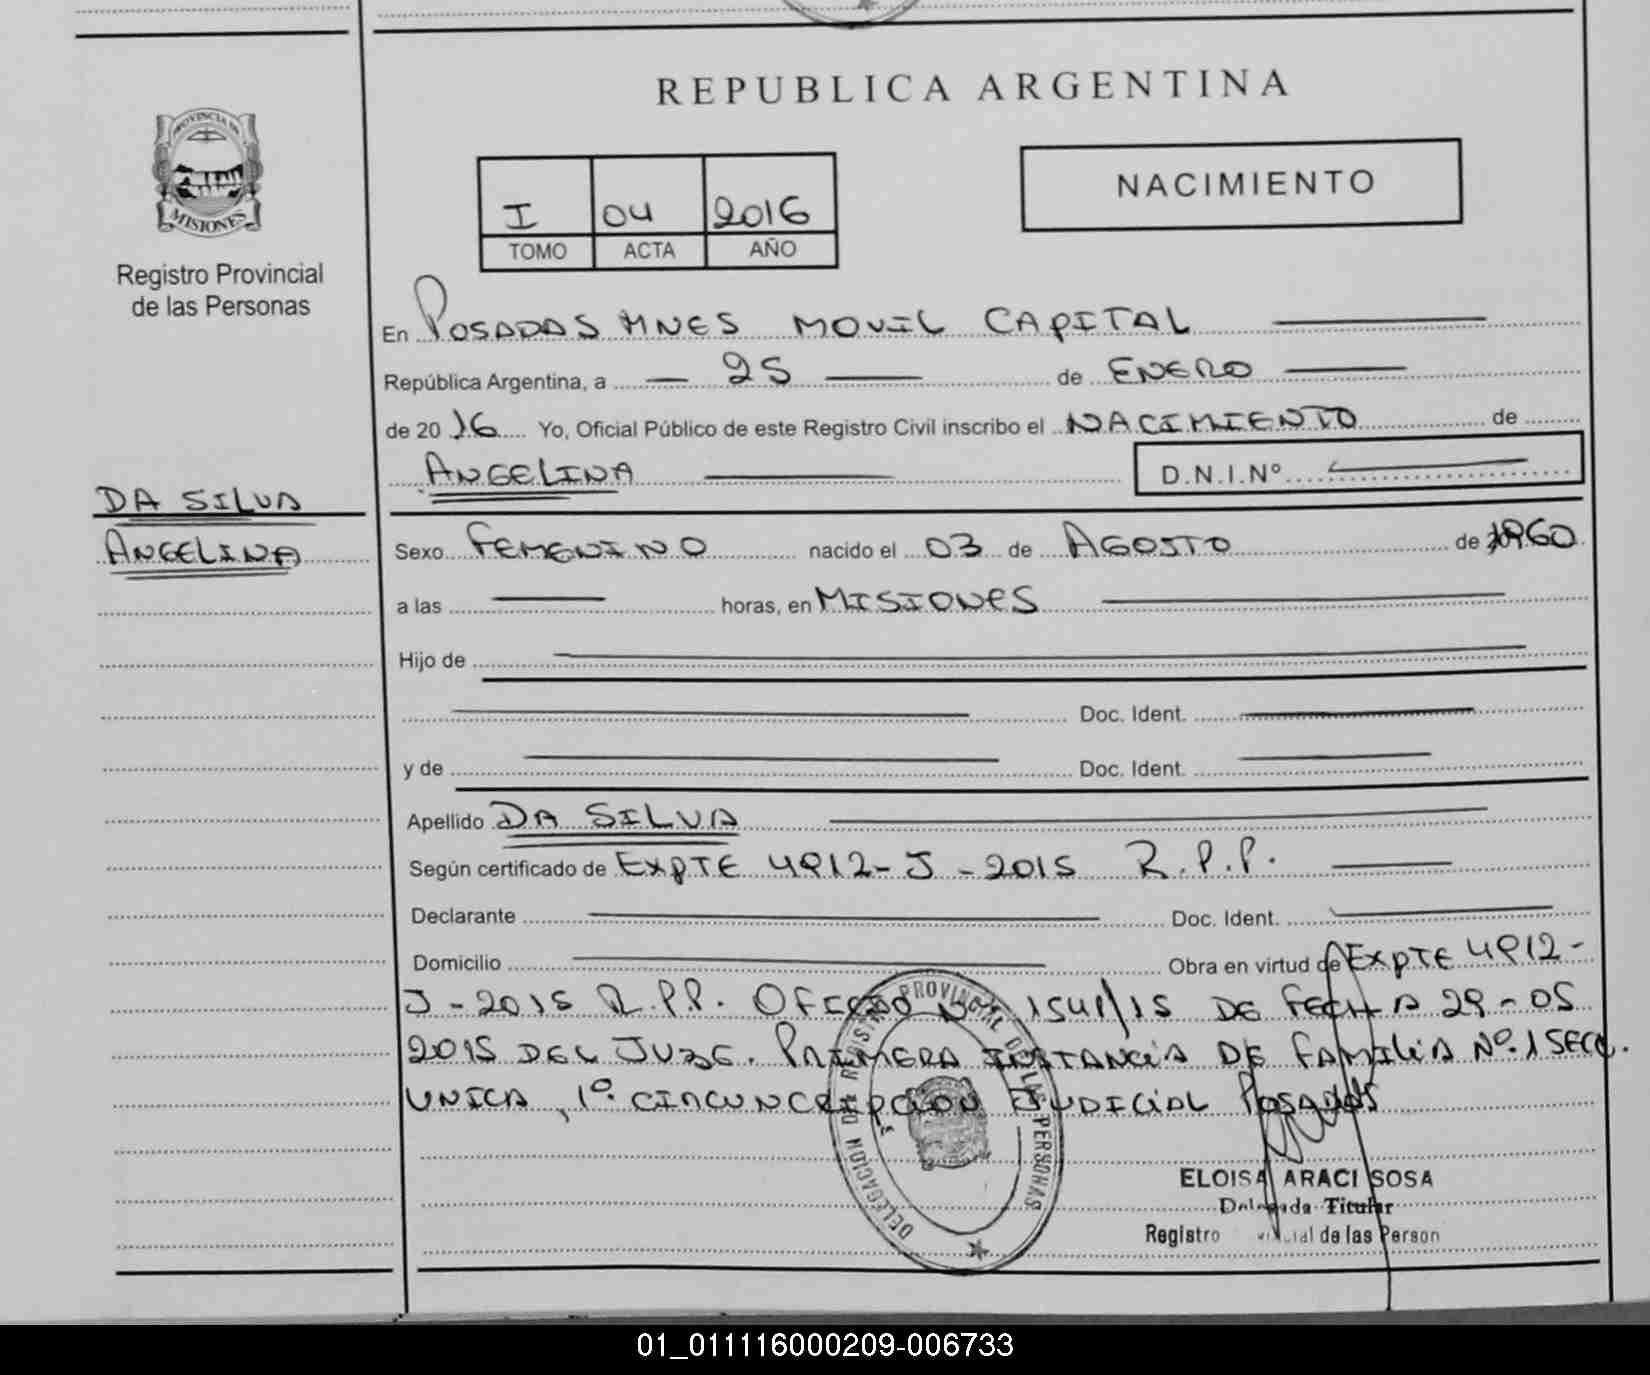 REPUBLICA ARGENTINA
PROVINCIA DE
MISIONES
Registro Provincial
de las Personas
I 04 2016
TOMO ACTA AÑO
NACIMIENTO
En POSADAS MNES MOVIL CAPITAL
República Argentina, a 25 de ENERO
de 2016 Yo, Oficial Público de este Registro Civil inscribo el NACIMIENTO de
ANGELINA D.N.I.Nº
DA SILVA
ANGELINA
Sexo FEMENINO nacido el 03 de AGOSTO de 1960
a las horas, en MISIONES
Hijo de
Doc. Ident.
y de Doc. Ident.
Apellido DA SILVA
Según certificado de EXPTE 4912-J-2015 R.P.P.
Declarante Doc. Ident.
Domicilio Obra en virtud de EXPTE 4912-
J-2015 R.P.P. OFICIO Nº 1541/15 DE FECHA 29-05
2015 DEL JUZG. PRIMERA INSTANCIA DE FAMILIA Nº.1 SECR.
UNICA, 1º CIRCUNCRIPCION JUDICIAL POSADAS
DELEGACION DEL REGISTRO PROVINCIAL DE LAS PERSONAS
ELOISA ARACI SOSA
Delegada Titular
Registro de las Person
01_011116000209-006733